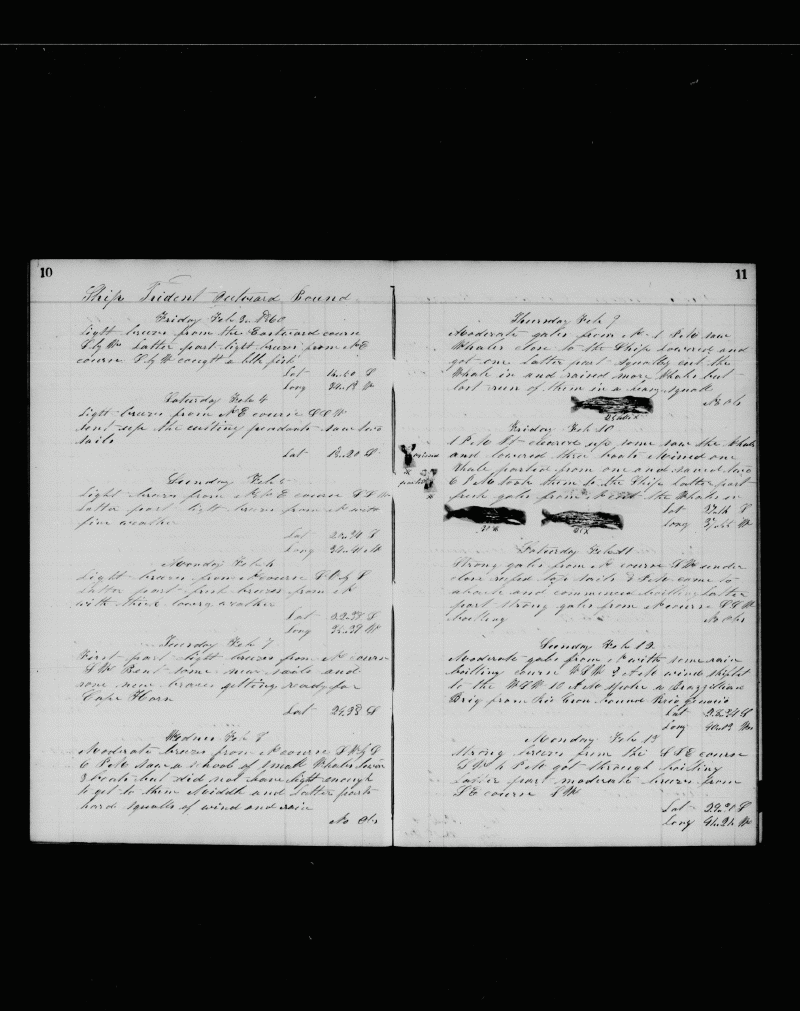 10
Ship Trident Outward Bound
Friday Feb 3 1860
Light breeze from the Eastward course
S by W Latter part light breeze from NE
course S by W caught a blk fish
Lat S
Long W
Saturday Feb 4
Light breeze from NE course SSW
sent up the cutting pendants saw two
sails
Lat 18.20 S
Sunday Feb
Light breeze from course
Latter part light breeze from N with
fine weather
Lat S
Long W
Monday Feb 6
Light breeze from N course
Latter part fresh breeze from N
with thick weather
Lat 22.38 S
Long W
Tuesday Feb 7
First part light breeze from N course
SW Bent some new sails and
some new braces getting ready for
Cape Horn
Lat 24.38 S
Wednes Feb 8
Moderate breeze from N course
6 PM saw a school of small Whales
3 boats but did not have light enough
to get to them Middle and Latter parts
hard squalls of wind and rain
No Obs
11
Thursday Feb 9
Moderate gales from N 1 PM saw
Whales close to the Ship lowered and
got one Latter part squally cut the
Whale in and raised more Whales but
lost run of them in a heavy squall
No Obs
Friday Feb 10
1 PM it cleared up some saw the Whales
and lowered three boats Missed one
Whale parted from one and saved two
6 PM took them to the Ship Latter part
fresh gales from N cut the Whales in
Lat S
Long W
Saturday Feb 11
Strong gales from N course SW under
close reefed top sails 2 PM came to
and commenced boiling Latter
part strong gales from N course SSW
boiling
No Obs
Sunday Feb 12
Moderate gales from N with some rain
boiling course 2 AM wind shift
to the WSW 10 AM spoke a Brazilian
Brig from bound
Lat S
Long W
Monday Feb 13
Strong breeze from the SSE course
4 PM got through boiling
Latter part moderate breeze from
SE course SW
Lat S
Long W